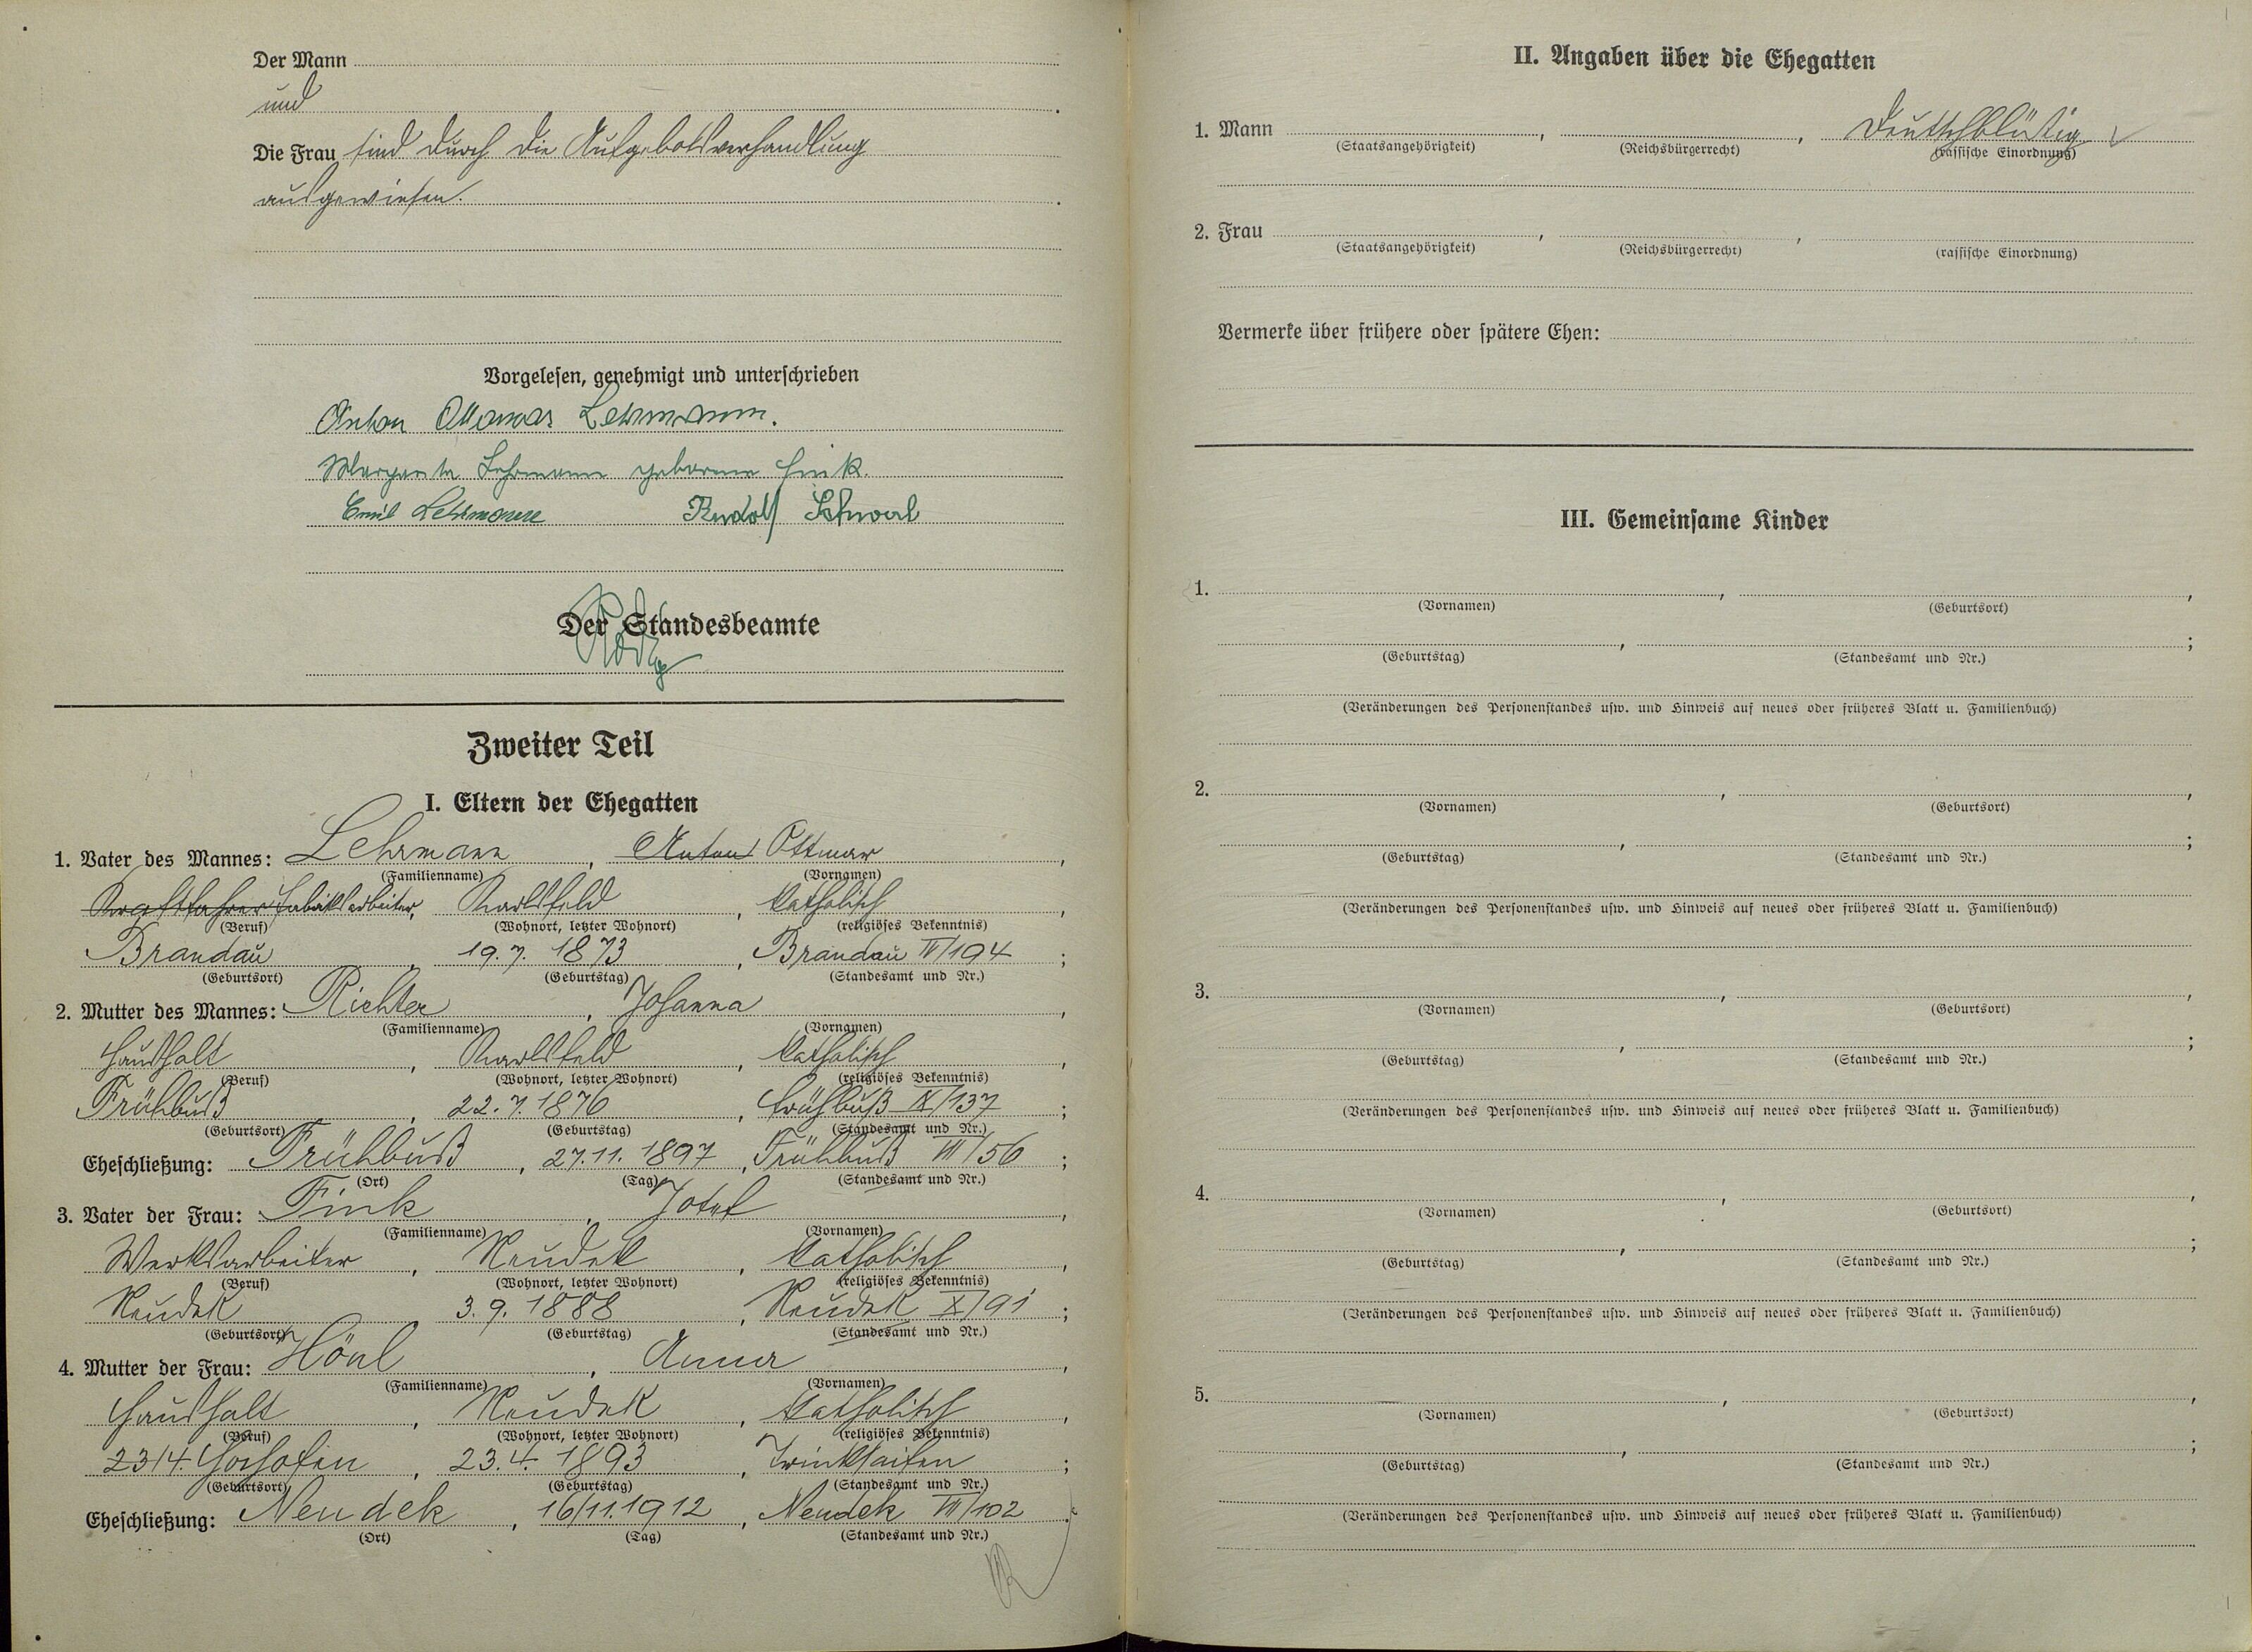 Der Mann
und
Die Frau sind durch die Aufgebotsverhandlung
ausgewiesen.
Vorgelesen, genehmigt und unterschrieben
Anton Ottomar Lehrmann.
Margareta Lehrmann geborene Fink.
Emil Lehrmann Rudolf
Der Standesbeamte
Zweiter Teil
I. Eltern der Ehegatten
1. Vater des Mannes: Lehrmann, Anton Ottmar,
(Familienname) (Vornamen)
Kraftfahrer Fabriksarbeiter, Karlsfeld, katholisch,
(Beruf) (Wohnort, letzter Wohnort) (religiöses Bekenntnis)
Brandau, 19.7. 1873, Brandau IV/194;
(Geburtsort) (Geburtstag) (Standesamt und Nr.)
2. Mutter des Mannes: Richter, Johanna,
(Familienname) (Vornamen)
Haushalt, Karlsfeld, katholisch,
(Beruf) (Wohnort, letzter Wohnort) (religiöses Bekenntnis)
Frühbuß, 22.7.1876, Frühbuß IX/137;
(Geburtsort) (Geburtstag) (Standesamt und Nr.)
Eheschließung: Frühbuß, 27.11. 1897, Frühbuß VII/56;
(Ort) (Tag) (Standesamt und Nr.)
3. Vater der Frau: Fink, Josef,
(Familienname) (Vornamen)
Werksarbeiter, Neudek, katholisch,
(Beruf) (Wohnort, letzter Wohnort) (religiöses Bekenntnis)
Neudek, 3.9. 1888, Neudek X/91;
(Geburtsort) (Geburtstag) (Standesamt und Nr.)
4. Mutter der Frau: Hönl, Anna,
(Familienname) (Vornamen)
Haushalt, Neudek, katholisch,
(Beruf) (Wohnort, letzter Wohnort) (religiöses Bekenntnis)
23/4. Hochofen, 23.4. 1893, Trinksaifen;
(Geburtsort) (Geburtstag) (Standesamt und Nr.)
Eheschließung: Neudek, 16/11.1912, Neudek VII/102
(Ort) (Tag) (Standesamt und Nr.)
II. Angaben über die Ehegatten
1. Mann , , Deutschblütig
(Staatsangehörigkeit) (Reichsbürgerrecht) (rassische Einordnung)
2. Frau , ,
(Staatsangehörigkeit) (Reichsbürgerrecht) (rassische Einordnung)
Vermerke über frühere oder spätere Ehen:
III. Gemeinsame Kinder
1. , ,
(Vornamen) (Geburtsort)
, ;
(Geburtstag) (Standesamt und Nr.)
(Veränderungen des Personenstandes usw. und Hinweis auf neues oder früheres Blatt u. Familienbuch)
2. , ,
(Vornamen) (Geburtsort)
, ;
(Geburtstag) (Standesamt und Nr.)
(Veränderungen des Personenstandes usw. und Hinweis auf neues oder früheres Blatt u. Familienbuch)
3. , ,
(Vornamen) (Geburtsort)
, ;
(Geburtstag) (Standesamt und Nr.)
(Veränderungen des Personenstandes usw. und Hinweis auf neues oder früheres Blatt u. Familienbuch)
4. , ,
(Vornamen) (Geburtsort)
, ;
(Geburtstag) (Standesamt und Nr.)
(Veränderungen des Personenstandes usw. und Hinweis auf neues oder früheres Blatt u. Familienbuch)
5. , ,
(Vornamen) (Geburtsort)
, ;
(Geburtstag) (Standesamt und Nr.)
(Veränderungen des Personenstandes usw. und Hinweis auf neues oder früheres Blatt u. Familienbuch)